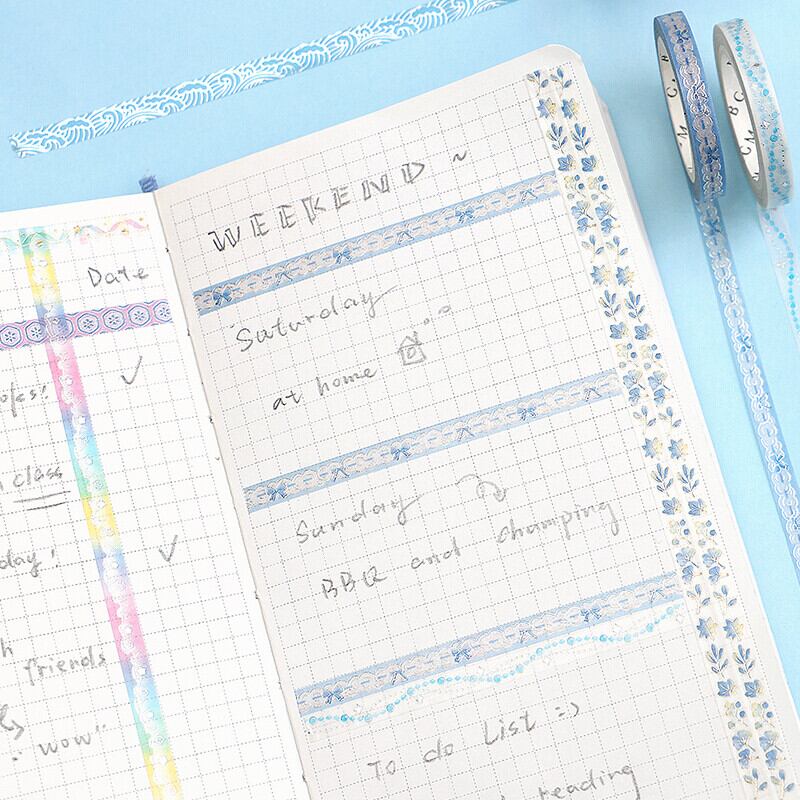 Date
class
day!
friends
"wow"
WEEKEND ~
Saturday
at home
Sunday
BBQ and champing
To do List =)
reading